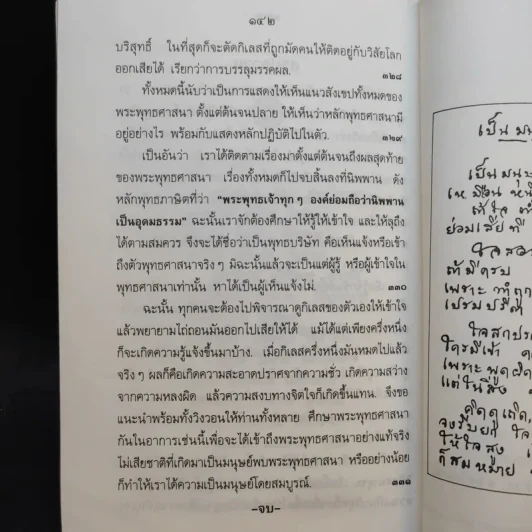 ๑๔๒
บริสุทธิ์ ในที่สุดก็จะตัดกิเลสที่ถูกมัดคนให้ติดอยู่กับวิสัยโลก
ออกเสียได้ เรียกว่าการบรรลุมรรคผล. ๓๒๘
ทั้งหมดนี้นับว่าเป็นการแสดงให้เห็นแนวสังเขปทั้งหมดของ
พระพุทธศาสนา ตั้งแต่ต้นจนปลาย ให้เห็นว่าหลักพุทธศาสนามี
อยู่อย่างไร พร้อมกับแสดงหลักปฏิบัติไปในตัว. ๓๒๙
เป็นอันว่า เราได้ติดตามเรื่องมาตั้งแต่ต้นจนถึงผลสุดท้าย
ของพระพุทธศาสนา เรื่องทั้งหมดก็ไปจบสิ้นลงที่นิพพาน ดัง
หลักพุทธภาษิตที่ว่า "พระพุทธเจ้าทุก ๆ องค์ย่อมถือว่านิพพาน
เป็นอุดมธรรม" ฉะนั้นเราจักต้องศึกษาให้รู้ให้เข้าใจ และให้ลุถึง
ได้ตามสมควร จึงจะได้ชื่อว่าเป็นพุทธบริษัท คือเห็นแจ้งหรือเข้า
ถึงตัวพุทธศาสนาจริงๆ มิฉะนั้นแล้วจะเป็นแต่ผู้รู้ หรือผู้เข้าใจใน
พุทธศาสนาเท่านั้น หาได้เป็นผู้เห็นแจ้งไม่. ๓๓๐
ฉะนั้น ทุกคนจะต้องไปพิจารณาดูกิเลสของตัวเองให้เข้าใจ
แล้วพยายามไถ่ถอนมันออกไปเสียให้ได้ แม้ได้แต่เพียงครึ่งหนึ่ง
ก็จะเกิดความรู้แจ้งขึ้นมาบ้าง. เมื่อกิเลสครึ่งหนึ่งมันหมดไปแล้ว
จริงๆ ผลก็คือเกิดความสะอาดปราศจากความชั่ว เกิดความสว่าง
จากความหลงผิด แล้วความสงบทางจิตใจก็เกิดขึ้นแทน. จึงขอ
แนะนำพร้อมทั้งวิงวอนให้ท่านทั้งหลาย ศึกษาพระพุทธศาสนา
กันในอาการเช่นนี้เพื่อจะได้เข้าถึงพระพุทธศาสนาอย่างแท้จริง
ไม่เสียชาติที่เกิดมาเป็นมนุษย์พบพระพุทธศาสนา หรืออย่างน้อย
ก็ทำให้เราได้ความเป็นมนุษย์โดยสมบูรณ์. ๓๓๑
-จบ-
เป็น
เป็น
เหมือน
ย่อมเสียที
ใจสอา
ถ้ามีครบ
เพราะ
เปรมปรีดา
ใจสกปร
ใครมีเข้า
เพราะพูดผิด
แต่ในสิ่ง
คิดดูเถิด
จงรีบยก ใจ
ให้ใจสูง
ก็สมหมาย